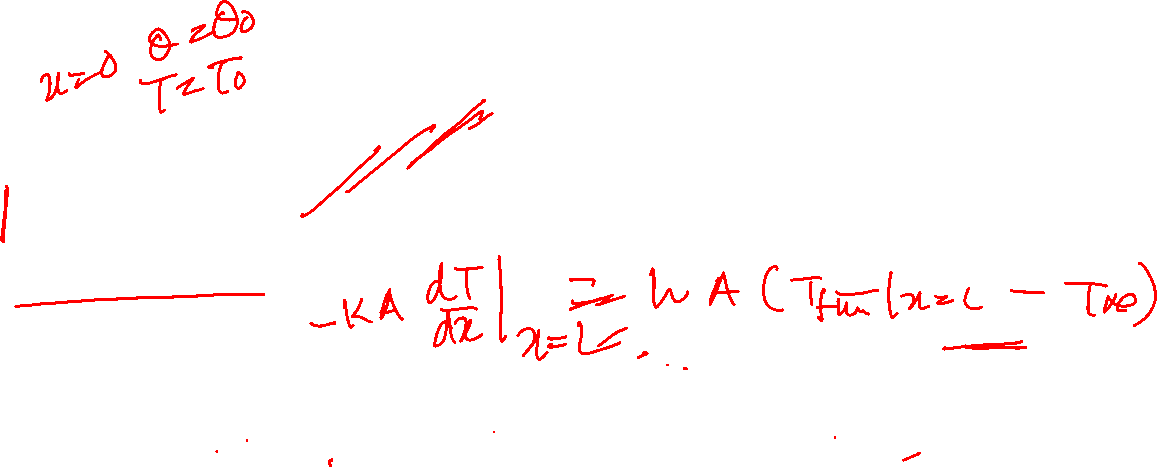 x=0 θ=θ0
T=T0
-KA dT/dx |x=L = hA (Tfin|x=L - T∞)